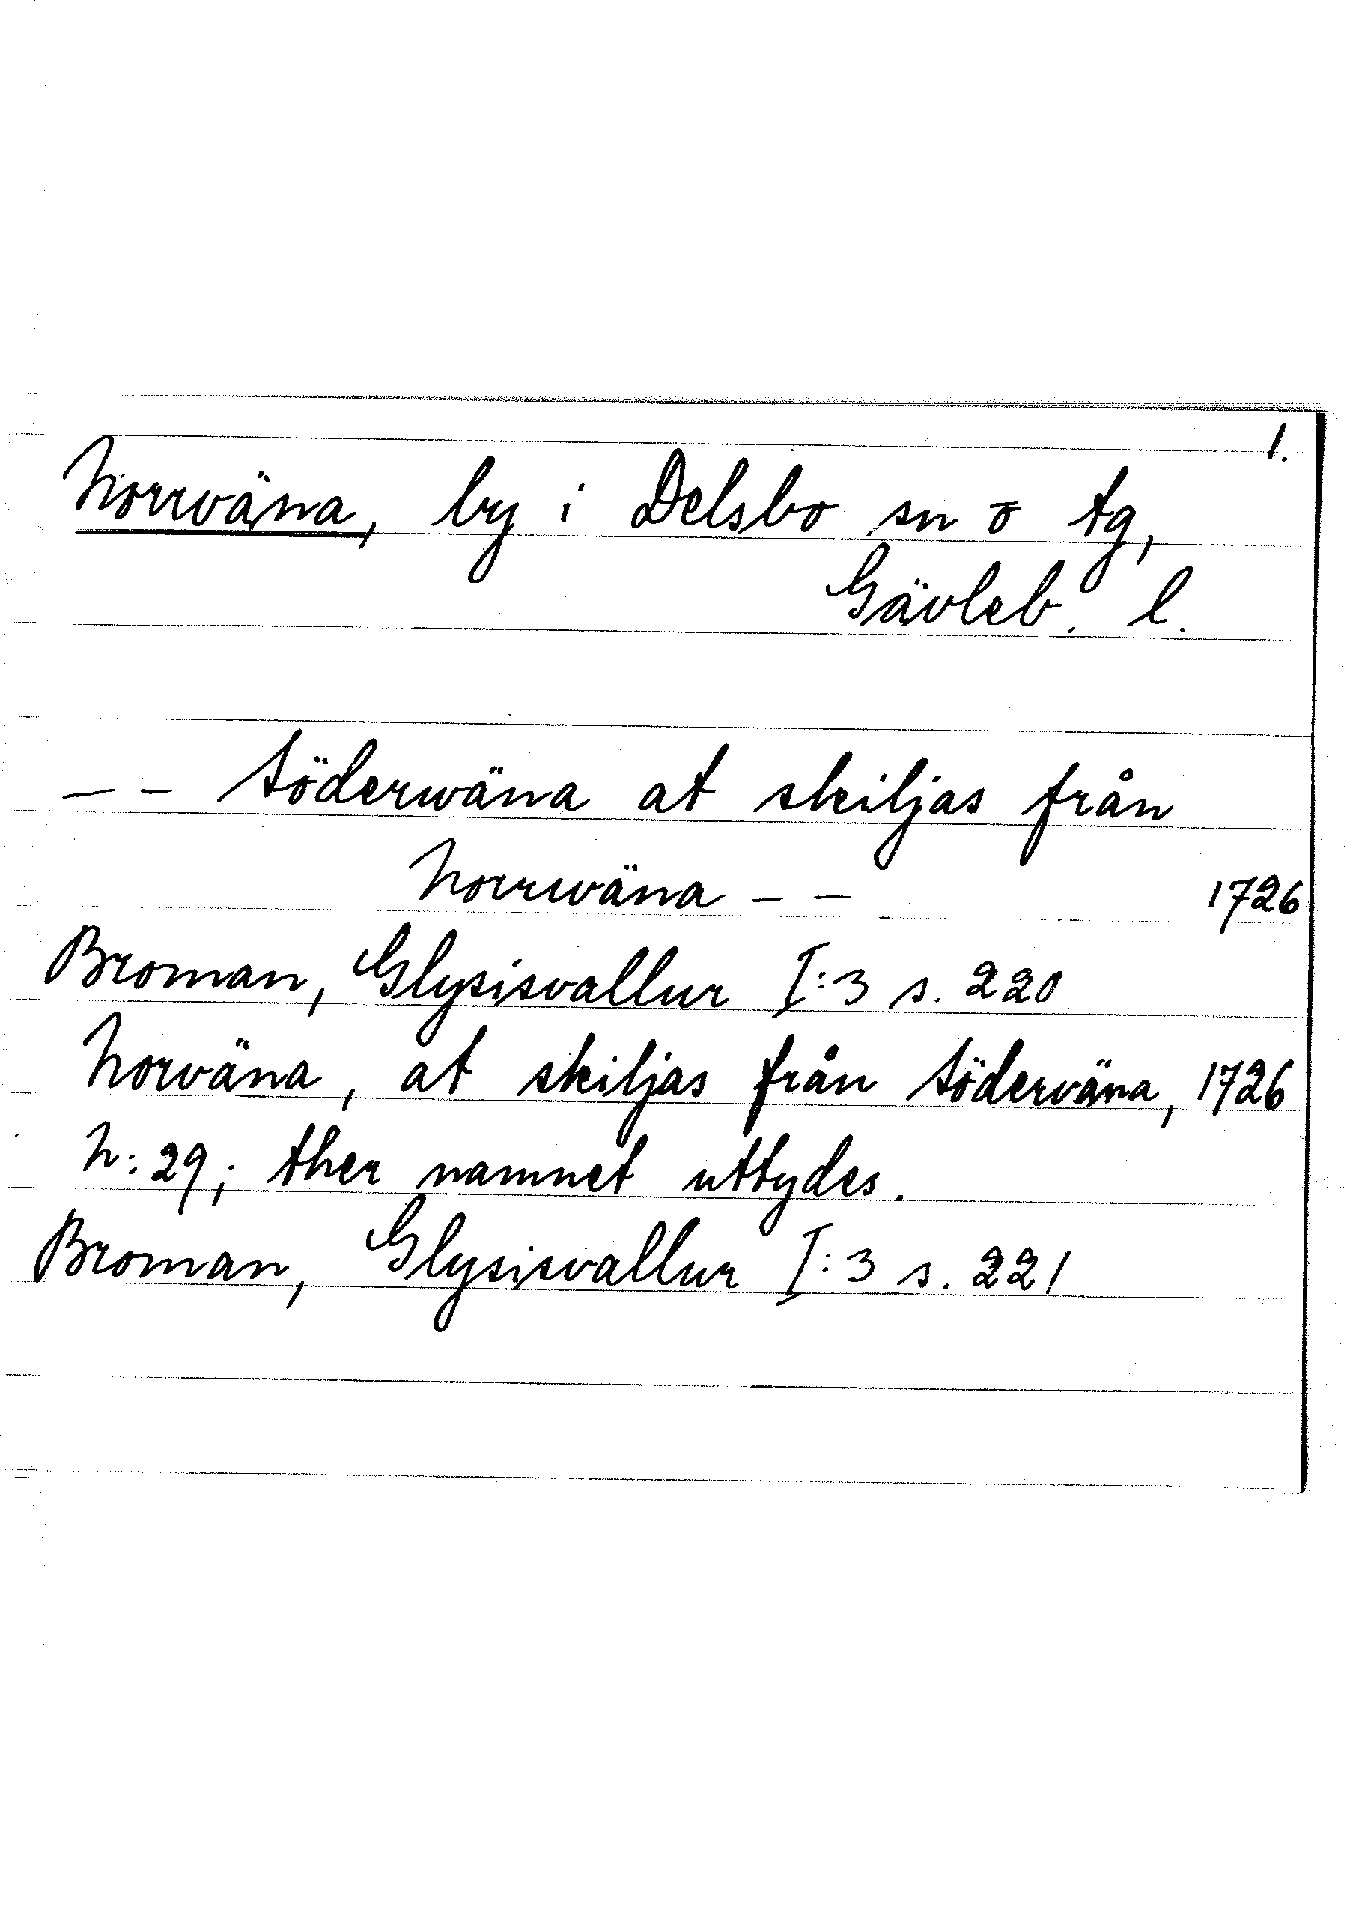 1.
Norrväna, by i Delsbo sn o tg,
Gävleb. l.
— – Söderwäna at skiljas från
Norrwäna – –
1726
Broman, Glysisvallur I:3 s. 220
Norväna, at skiljas från Söderväna, 1726
N: 29; ther namnet uttydes.
Broman, Glysisvallur I:3 s. 221